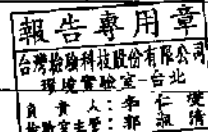 報告專用章
台灣檢驗科技股份有限公司
環境實驗室-台北
負責人:李仁
檢驗室主管:郭淑清